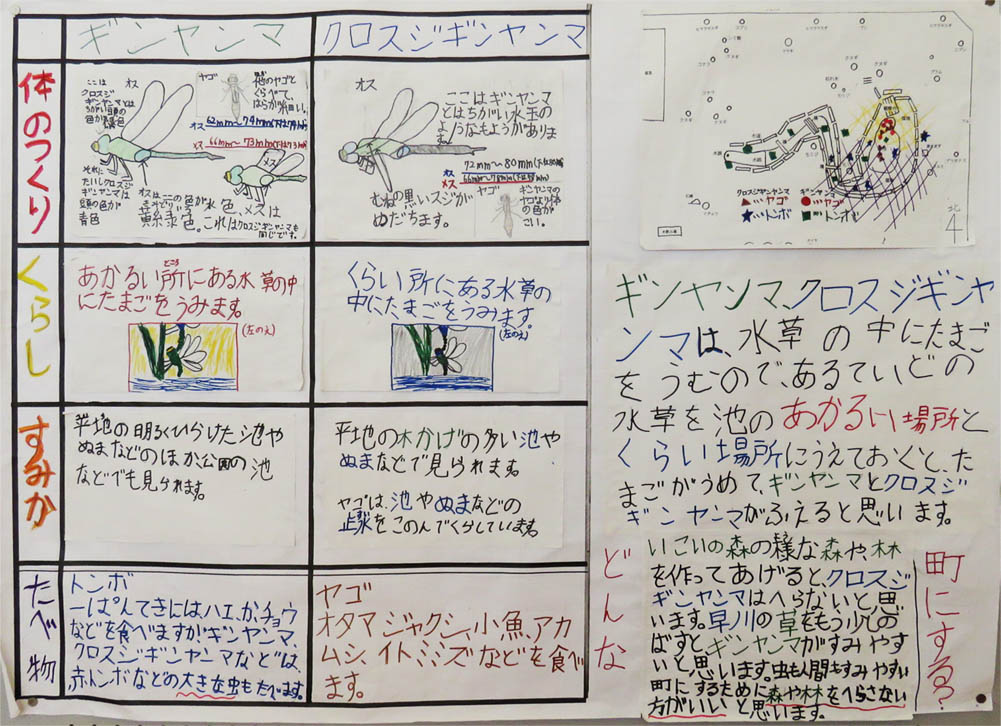 ギンヤンマ
クロスジギンヤンマ
体のつくり
ここは
クロスジ
ギンヤンマとは
ちがい
色が
オス
ヤゴ
他のヤゴと
くらべて、
はらが細長い。
オス 62mm~74mm
メス 66mm~73mm
それに
たいしクロスジ
ギンヤンマは
頭の色が
青色
メス
オスはここの
色が水色、メスは
黄緑色。これはクロスジギンヤンマも
同じです。
オス
ここはギンヤンマ
とはちがい水玉の
ようなもようがありま
す。
72mm~80mm
オス
メス 66mm~78mm
むねの黒いスジが
めだちます。
ヤゴ
ギンヤンマの
ヤゴより体
の色が
こい。
くらし
あかるい所にある水草の中
ところ
にたまごをうみます。
(左のえ)
くらい所にある水草の
中にたまごをうみます。
(左のえ)
すみか
平地の明るくひらけた池や
ぬまなどのほか、公園の池
などでも見られます。
平地の木かげの多い池や
ぬまなどで見られます。
ヤゴは、池やぬまなどの
止水をこのんでくらしています。
たべ物
トンボ
一ぱんてきには、ハエ、か、チョウ
などを食べますがギンヤンマ、
クロスジギンヤンマなどは、
赤トンボなどの大きな虫もたべます。
ヤゴ
オタマジャクシ、小魚、アカ
ムシ、イトミミズなどを食べ
ます。
クロスジギンヤンマ
▲…ヤゴ
★…トンボ
ギンヤンマ
●…ヤゴ
■…トンボ
北
4
ギンヤンマ、クロスジギンヤ
ンマは、水草の中にたまご
をうむので、あるていどの
水草を池のあかるい場所と
くらい場所にうえておくと、た
まごがうめて、ギンヤンマとクロスジ
ギンヤンマがふえると思います。
どんな
町にする?
いこいの森の様な森や、林
を作ってあげると、クロスジ
ギンヤンマはへらないと思
います。早川の草をもう少しの
ばすと、ギンヤンマがすみやす
いと思います。虫も人間もすみやすい
町にするために森や林をへらさない
方がいいと思います。